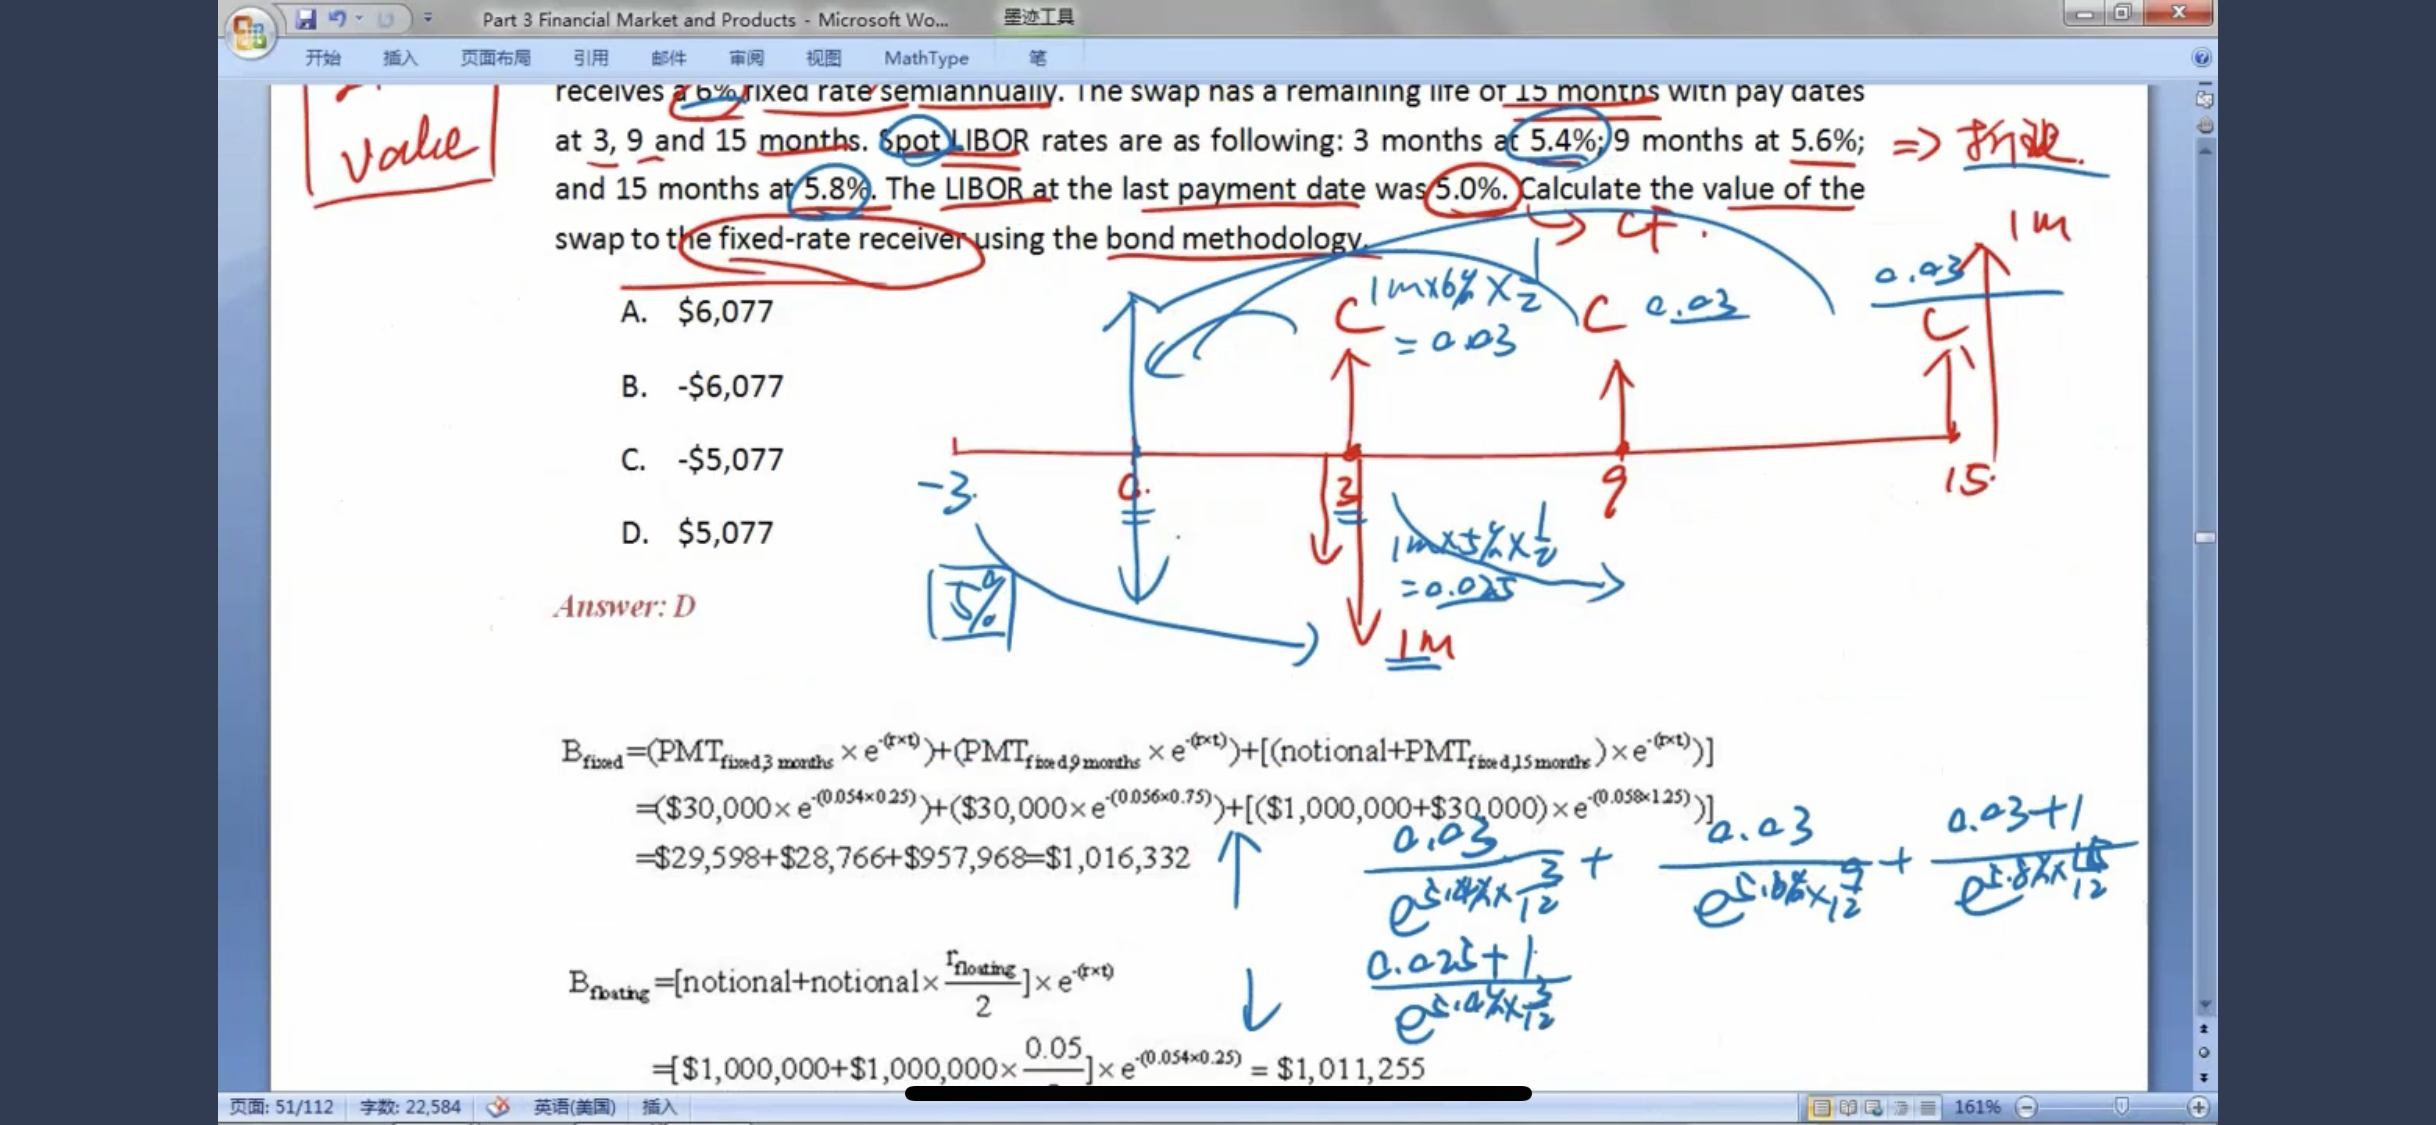 Part 3 Financial Market and Products - Microsoft Wo...
墨迹工具
开始 插入 页面布局 引用 邮件 审阅 视图 MathType 笔
receives a 6% fixed rate semiannually. The swap has a remaining life of 15 months with pay dates
value
at 3, 9 and 15 months. Spot LIBOR rates are as following: 3 months at 5.4%; 9 months at 5.6%;
=> 折现.
and 15 months at 5.8%. The LIBOR at the last payment date was 5.0%. Calculate the value of the
swap to the fixed-rate receiver using the bond methodology.
CF.
1M
0.03
A. $6,077
C 1m×6%×1/2
=0.03
C 0.03
C
B. -$6,077
C. -$5,077
-3. 0. 3 9 15.
D. $5,077
1m×5%×1/2
=0.025
5%
Answer: D
1M
B fixed =(PMT fixed,3 months × e^-(r×t))+(PMT fixed,9 months × e^-(r×t))+[(notional+PMT fixed,15 months)×e^-(r×t))]
=($30,000×e^-(0.054×0.25))+($30,000×e^-(0.056×0.75))+[($1,000,000+$30,000)×e^-(0.058×1.25))]
=$29,598+$28,766+$957,968=$1,016,332
0.03 + 0.03 + 0.03+1
e^5.4%×3/12 e^5.6%×9/12 e^5.8%×15/12
B floating =[notional+notional× r floating / 2]×e^-(r×t)
0.025+1
e^5.4%×3/12
=[$1,000,000+$1,000,000× 0.05 ]×e^-(0.054×0.25) = $1,011,255
页面: 51/112 字数: 22,584 英语(美国) 插入 161%